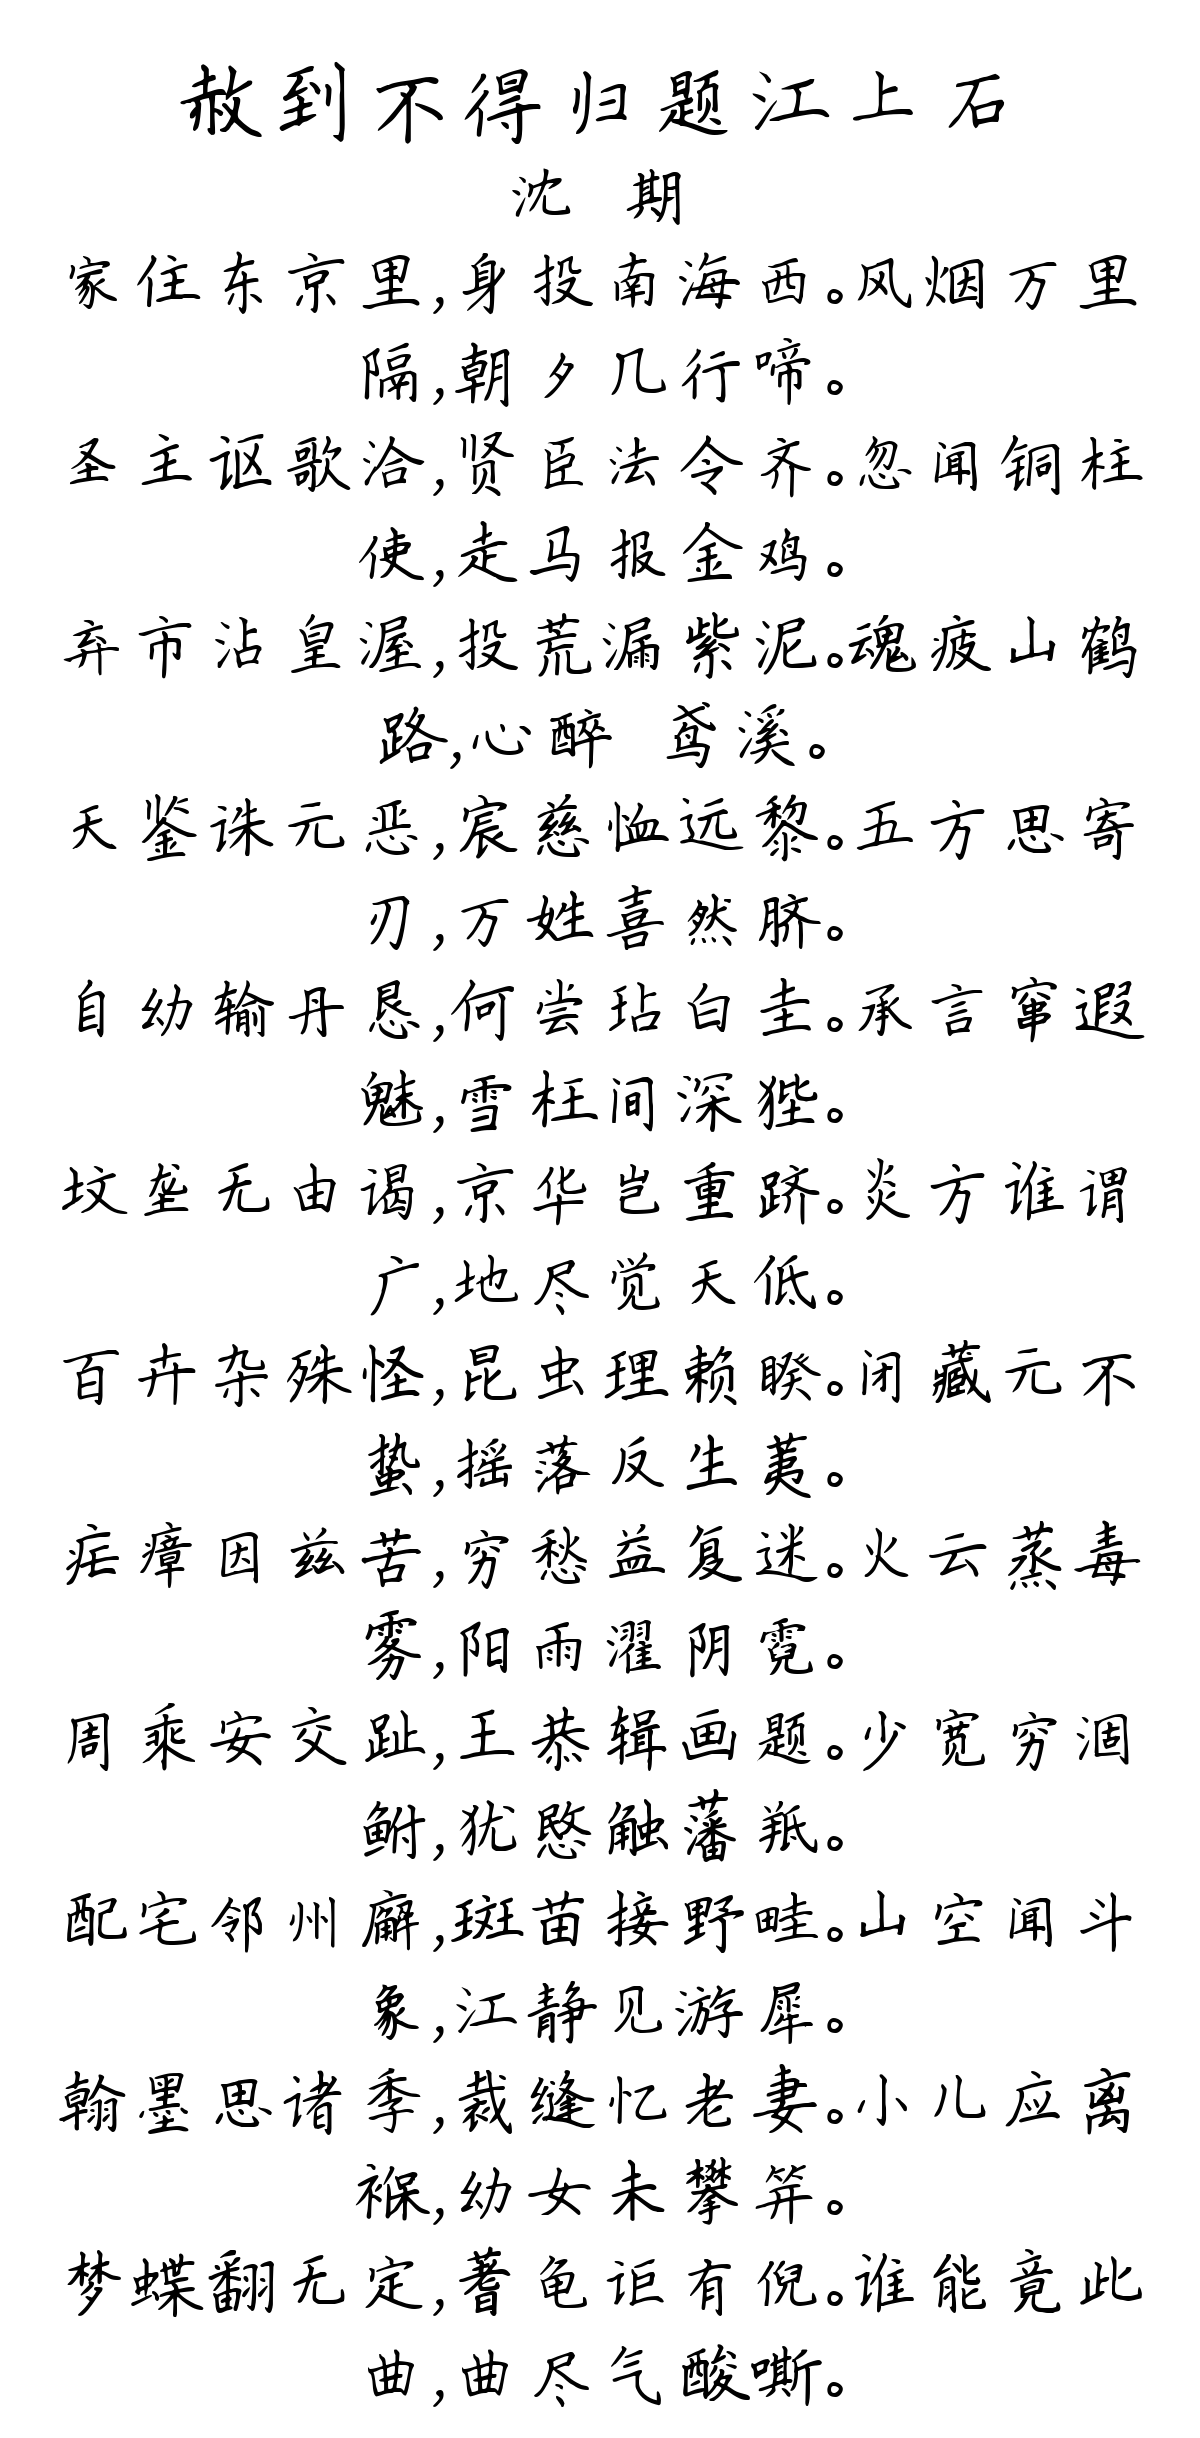 赦到不得归题江上石
沈 期
家住东京里,身投南海西。风烟万里
隔,朝夕几行啼。
圣主讴歌洽,贤臣法令齐。忽闻铜柱
使,走马报金鸡。
弃市沾皇渥,投荒漏紫泥。魂疲山鹤
路,心醉 鸢溪。
天鉴诛元恶,宸慈恤远黎。五方思寄
刃,万姓喜然脐。
自幼输丹恳,何尝玷白圭。承言窜遐
魅,雪枉间深狴。
坟垄无由谒,京华岂重跻。炎方谁谓
广,地尽觉天低。
百卉杂殊怪,昆虫理赖睽。闭藏元不
蛰,摇落反生荑。
疟瘴因兹苦,穷愁益复迷。火云蒸毒
雾,阳雨濯阴霓。
周乘安交趾,王恭辑画题。少宽穷涸
鲋,犹愍触藩羝。
配宅邻州廨,斑苗接野畦。山空闻斗
象,江静见游犀。
翰墨思诸季,裁缝忆老妻。小儿应离
褓,幼女未攀笄。
梦蝶翻无定,蓍龟讵有倪。谁能竟此
曲,曲尽气酸嘶。